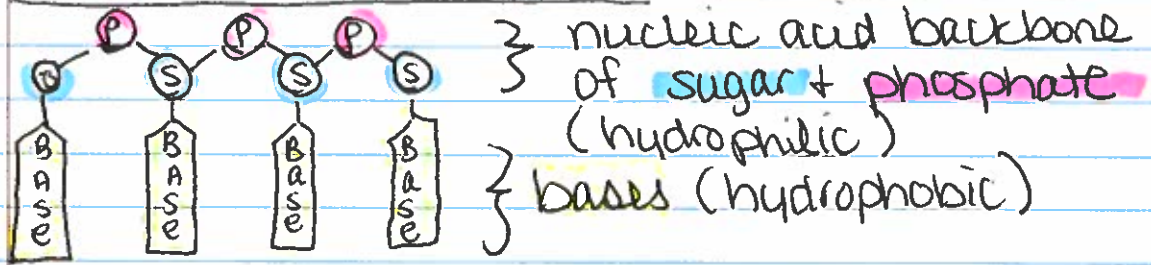 P P P
S S S S
Base Base Base Base
} nucleic acid backbone
of sugar + phosphate
(hydrophilic)
} bases (hydrophobic)